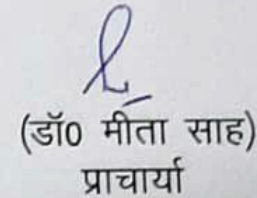 (डॉ0 मीता साह)
प्राचार्या